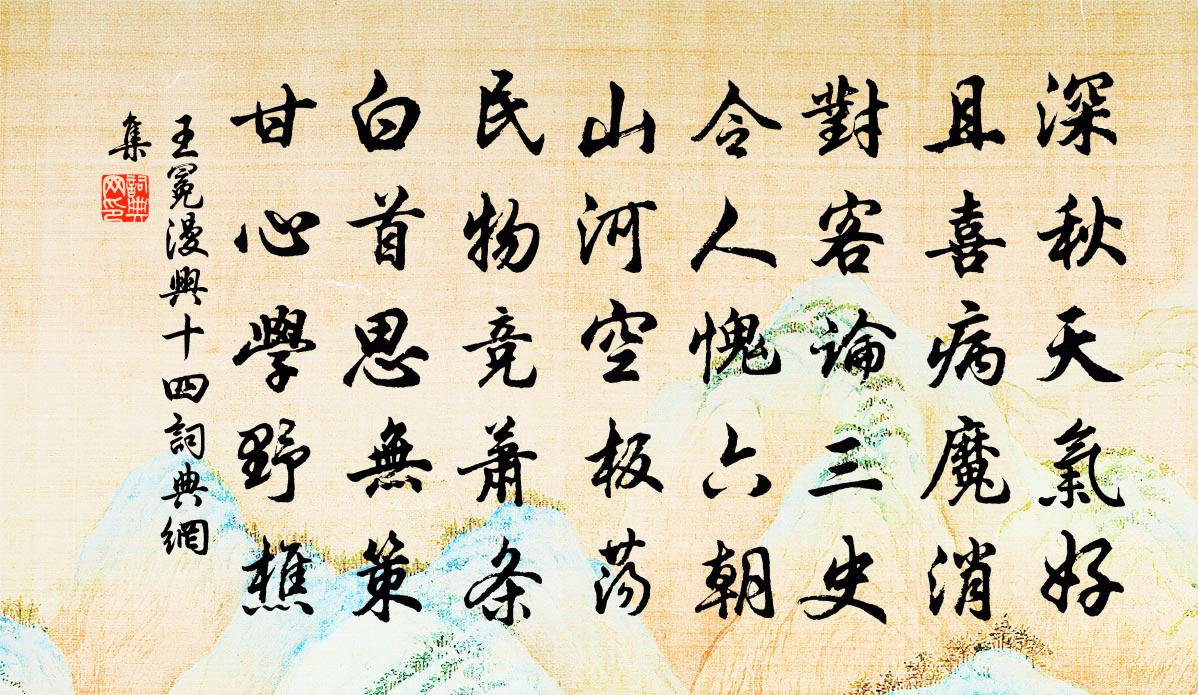 深秋天氣好
且喜病魔消
對客論三史
令人愧六朝
山河空板荡
民物竞萧条
白首思無策
甘心學野樵
王冕漫興十四詞典網
集
詞典
网印